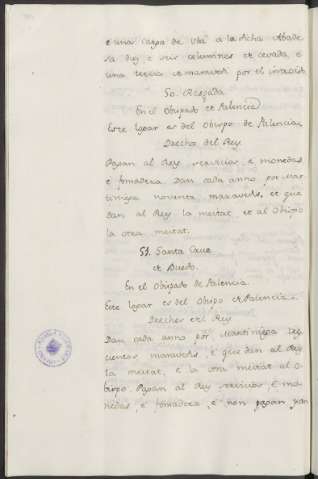 e una carga de vba a la dicha Abade
sa diez e seis celemines de cevada, e
una tercia de maravedi por el
50. Requada
En el Obispado de Palencia
Este logar es del Obispo de Palencia
Derechos del Rey
Pagan al Rey servicios, e monedas
e fonsadera. Dan cada anno por Mar
tiniega noventa maravedis, et que
dan al Rey la meitat, et al Obispo
la otra meitat.
51. Santa Cruz
de
En el Obispado de Palencia.
Este logar es del Obispo de Palencia
Derechos del Rey
Dan cada anno por Martiniega
cientos maravedis, e que dan al Rey
la meitat, e la otra meitat al O
bispo. Pagan al Rey servicios, e mo
nedas, e fonsadera, e non pagan